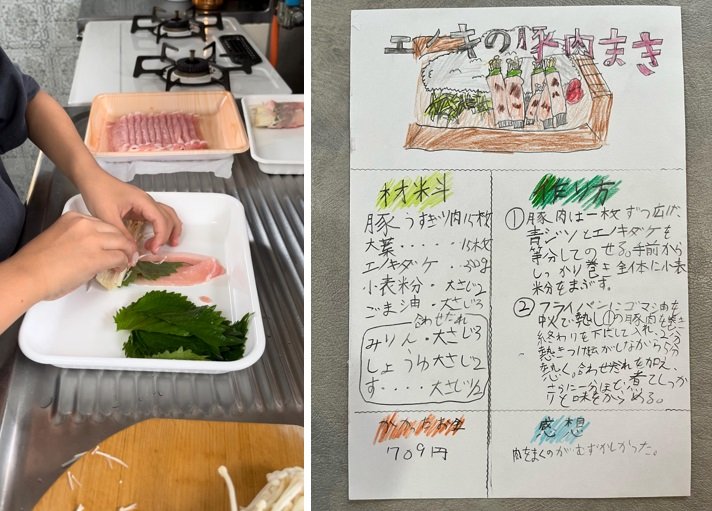 エノキの豚肉まき
材料
豚うすぎり肉15枚
大葉・・・・・15枚
エノキダケ・・300g
小表粉・大さじ2
ごま油・大さじ3
合わせだれ
みりん・大さじ3
しょうゆ大さじ2
す・・・・大さじ1/2
作り方
①豚肉は一枚ずつ広げ、
青ジソとエノキダケを
等分してのせる。手前から
しっかり巻き全体に小表
粉をまぶす。
②フライパンにゴマ油を
中火で熱し①の豚肉を巻き
終わりを下にして入れ、2分
熱きつけ転がしながら5分
熱く。合わせだれを加え、
さらに一分ほど、煮てしっか
りと味をからめる。
かかったお金
709円
感想
肉をまくのがむずかしかった。